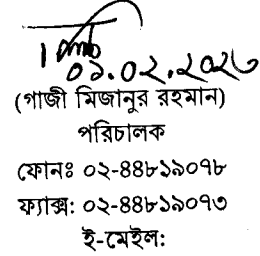 ০১.০২.২০২৩
(গাজী মিজানুর রহমান)
পরিচালক
ফোনঃ ০২-৪৪৮১৯০৭৮
ফ্যাক্স: ০২-৪৪৮১৯০৭৩
ই-মেইল: